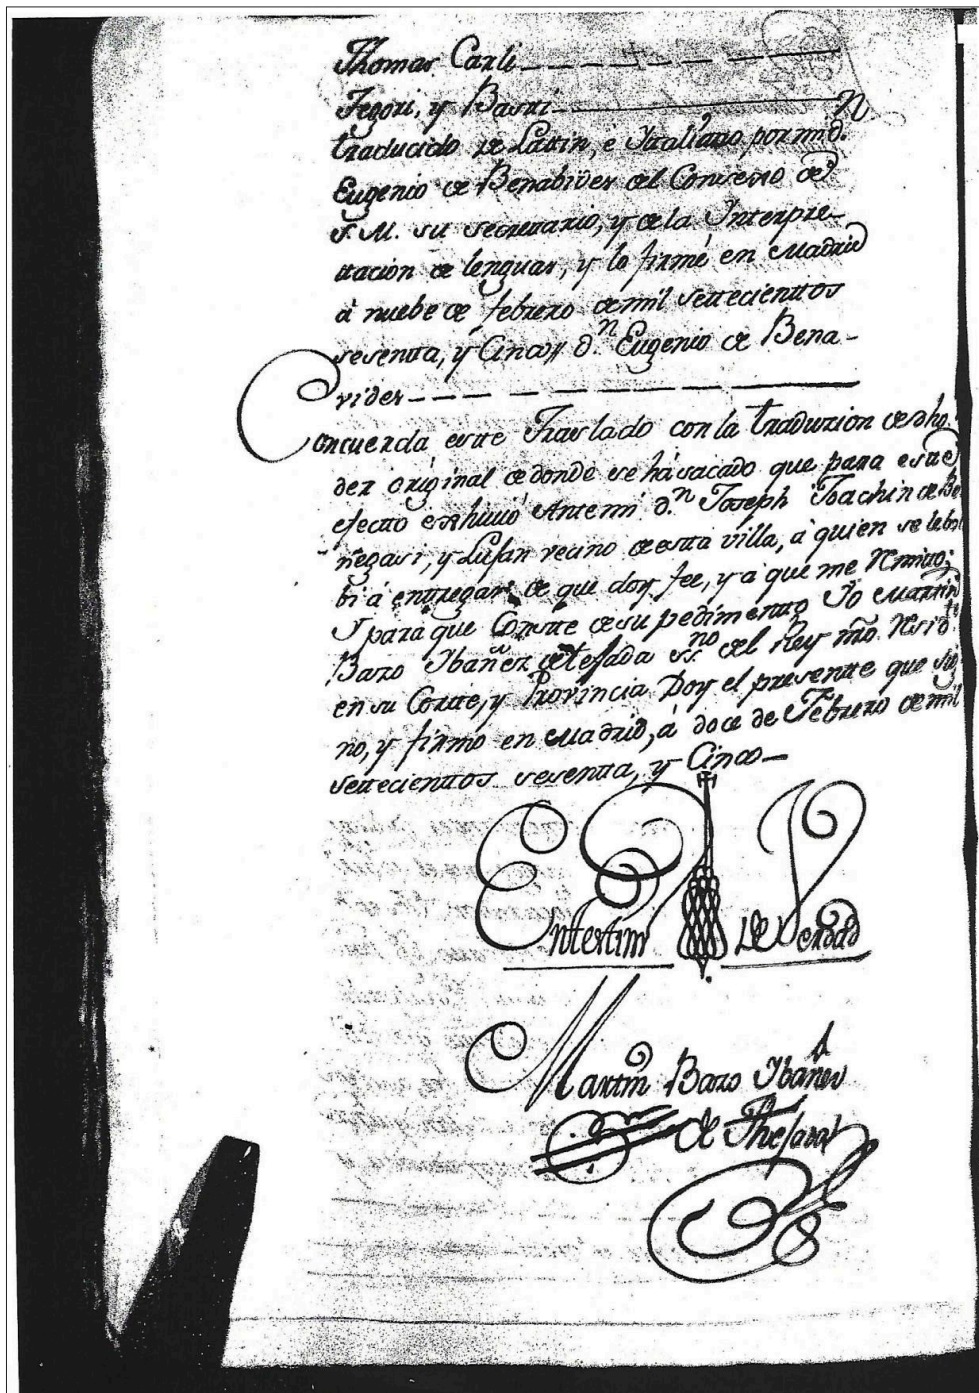 Thomas Carli
Tegori, y Basri
traducido de Lattin, è Italiano, por mi d.
Eugenio de Benabides del Consexo de
S. M. su secretario, y de la Interpre-
ttacion de lenguas, y lo firmé en Madrid
à nuebe de febrero de mil settecienttos
sesentta, y Cinco// d.n Eugenio de Bena-
vides
Concuerda estte Traslado con la traduzion
der original de donde se há sacado que para estte
efectto exhiuió Antemi d.n Joseph Joachin de Be
negasi, y Lujan vecino de estta villa, à quien se le bol
bi á enttregar de que doy fee, y à que me Remitto;
Y para que Constte de su pedimentto Yo Martin
Bazo Ibañez de tejada ss.no del Rey nro. Resid.te
en su Cortte, y Provincia Doy el presentte que sig
no, y firmo en Madrid, à doce de Febrero de mil
settecienttos sesentta, y Cinco
Enttestim.o de Verdad
Martin Bazo Ibañez
de Thejada